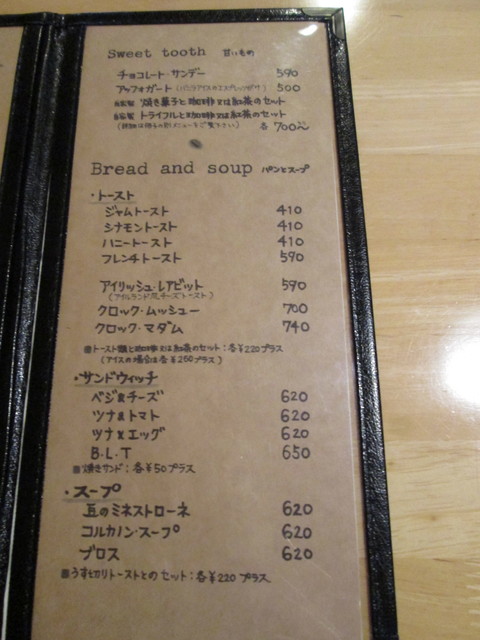 Sweet tooth 甘いもの
チョコレート・サンデー 590
アッフォガート (バニラアイスのエスプレッソがけ) 500
自家製 焼き菓子と珈琲又は紅茶のセット
自家製 トライフルと珈琲又は紅茶のセット
(詳細は傍らの別メニューをご覧下さい) 各 700〜
Bread and soup パンとスープ
・トースト
ジャムトースト 410
シナモントースト 410
ハニートースト 410
フレンチトースト 590
アイリッシュ・レアビット 590
(アイルランド風チーズトースト)
クロック・ムッシュー 700
クロック・マダム 740
■トースト類と珈琲又は紅茶のセット：各¥220プラス
(アイスの場合は各¥250プラス)
・サンドウィッチ
ベジ&チーズ 620
ツナ&トマト 620
ツナ&エッグ 620
B・L・T 650
■焼きサンド：各¥50プラス
・スープ
豆のミネストローネ 620
コルカノン・スープ 620
ブロス 620
■うす切りトーストとのセット：各¥220プラス